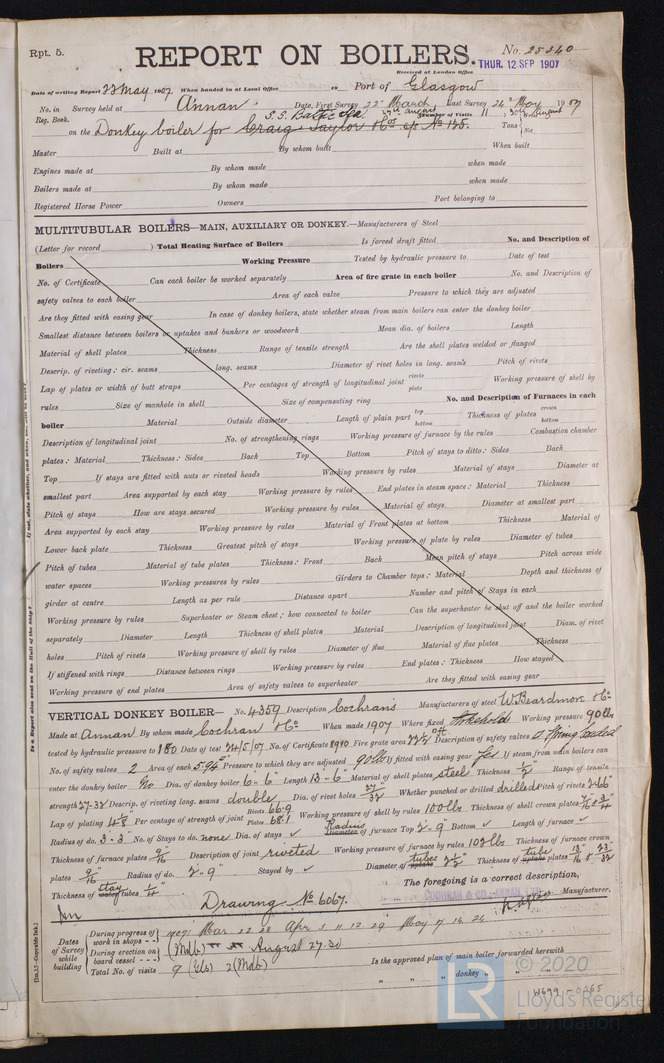 Rpt. 5.
REPORT ON BOILERS.
No. 25240
Received at London Office
THUR. 12 SEP 1907
Date of writing Report 23 May 1907 When handed in at Local Office to Port of Glasgow
No. in Survey held at Annan Date, First Survey 22nd March, Last Survey 24th May 1907
Reg. Book. S.S. Baltic Sea 27th august Number of Visits 11, 30th August
on the Donkey boiler for Craig Taylor & Co s/s No 135. Tons
Master Built at By whom built When built
Engines made at By whom made when made
Boilers made at By whom made when made
Registered Horse Power Owners Port belonging to
MULTITUBULAR BOILERS—MAIN, AUXILIARY OR DONKEY.—Manufacturers of Steel
(Letter for record ) Total Heating Surface of Boilers Is forced draft fitted No. and Description of
Boilers Working Pressure Tested by hydraulic pressure to Date of test
No. of Certificate Can each boiler be worked separately Area of fire grate in each boiler No. and Description of
safety valves to each boiler Area of each valve Pressure to which they are adjusted
Are they fitted with easing gear In case of donkey boilers, state whether steam from main boilers can enter the donkey boiler
Smallest distance between boilers or uptakes and bunkers or woodwork Mean dia. of boilers Length
Material of shell plates Thickness Range of tensile strength Are the shell plates welded or flanged
Descrip. of riveting: cir. seams long. seams Diameter of rivet holes in long. seams Pitch of rivets
Lap of plates or width of butt straps Per centages of strength of longitudinal joint rivets plate Working pressure of shell by
rules Size of manhole in shell Size of compensating ring No. and Description of Furnaces in each
boiler Material Outside diameter Length of plain part top bottom Thickness of plates crown bottom
Description of longitudinal joint No. of strengthening rings Working pressure of furnace by the rules Combustion chamber
plates: Material Thickness: Sides Back Top Bottom Pitch of stays to ditto: Sides Back
Top If stays are fitted with nuts or riveted heads Working pressure by rules Material of stays Diameter at
smallest part Area supported by each stay Working pressure by rules End plates in steam space: Material Thickness
Pitch of stays How are stays secured Working pressure by rules Material of stays Diameter at smallest part
Area supported by each stay Working pressure by rules Material of Front plates at bottom Thickness Material of
Lower back plate Thickness Greatest pitch of stays Working pressure of plate by rules Diameter of tubes
Pitch of tubes Material of tube plates Thickness: Front Back Mean pitch of stays Pitch across wide
water spaces Working pressures by rules Girders to Chamber tops: Material Depth and thickness of
girder at centre Length as per rule Distance apart Number and pitch of Stays in each
Working pressure by rules Superheater or Steam chest; how connected to boiler Can the superheater be shut off and the boiler worked
separately Diameter Length Thickness of shell plates Material Description of longitudinal joint Diam. of rivet
holes Pitch of rivets Working pressure of shell by rules Diameter of flue Material of flue plates Thickness
If stiffened with rings Distance between rings Working pressure by rules End plates: Thickness How stayed
Working pressure of end plates Area of safety valves to superheater Are they fitted with easing gear
VERTICAL DONKEY BOILER— No. 4359 Description Cochran's Manufacturers of steel W. Beardmore & Co
Made at Annan By whom made Cochran & Co When made 1907 Where fixed Stokehold Working pressure 90 lbs
tested by hydraulic pressure to 180 Date of test 24/5/07 No. of Certificate 8910 Fire grate area 22½ Description of safety valves d. spring loaded
No. of safety valves 2 Area of each 5.94 Pressure to which they are adjusted 90 lbs If fitted with easing gear Yes If steam from main boilers can
enter the donkey boiler No Dia. of donkey boiler 6'-6" Length 13'-6" Material of shell plates steel Thickness ½" Range of tensile
strength 27-32 Descrip. of riveting long. seams double Dia. of rivet holes 27/32 Whether punched or drilled drilled Pitch of rivets 2.66"
Lap of plating 4⅛" Per centage of strength of joint Rivets 66.9 Plates 68.1 Working pressure of shell by rules 100 lbs Thickness of shell crown plates
Radius of do. 3'-3" No. of Stays to do. none Dia. of stays ✓ Radius Diameter of furnace Top 2'-9" Bottom ✓ Length of furnace ✓
Thickness of furnace plates 9/16 Description of joint riveted Working pressure of furnace by rules 102 lbs Thickness of furnace crown
plates 9/16 Radius of do. 2'-9" Stayed by ✓ Diameter of uptake tubes 2½" Thickness of uptake tube plates 13/16 & 23/32
Thickness of water stay tubes ¼"
The foregoing is a correct description,
Drawing No 6067.
COCHRAN & CO. ANNAN, Manufacturer.
Dates of Survey while building
During progress of work in shops - - 1907: Mar 22 28 Apr 5 11 12 29 May 17 14 24
During erection on board vessel - - - (Mdb) August 27.30
Total No. of visits 9 (Gls) 2 (Mdb)
Is the approved plan of main boiler forwarded herewith
" " " donkey " " "
W699-0265
If not, state whether, and when, one will be sent?
Is a Report also sent on the Hull of the Ship?
© 2020
LR
Lloyd's Register
Foundation